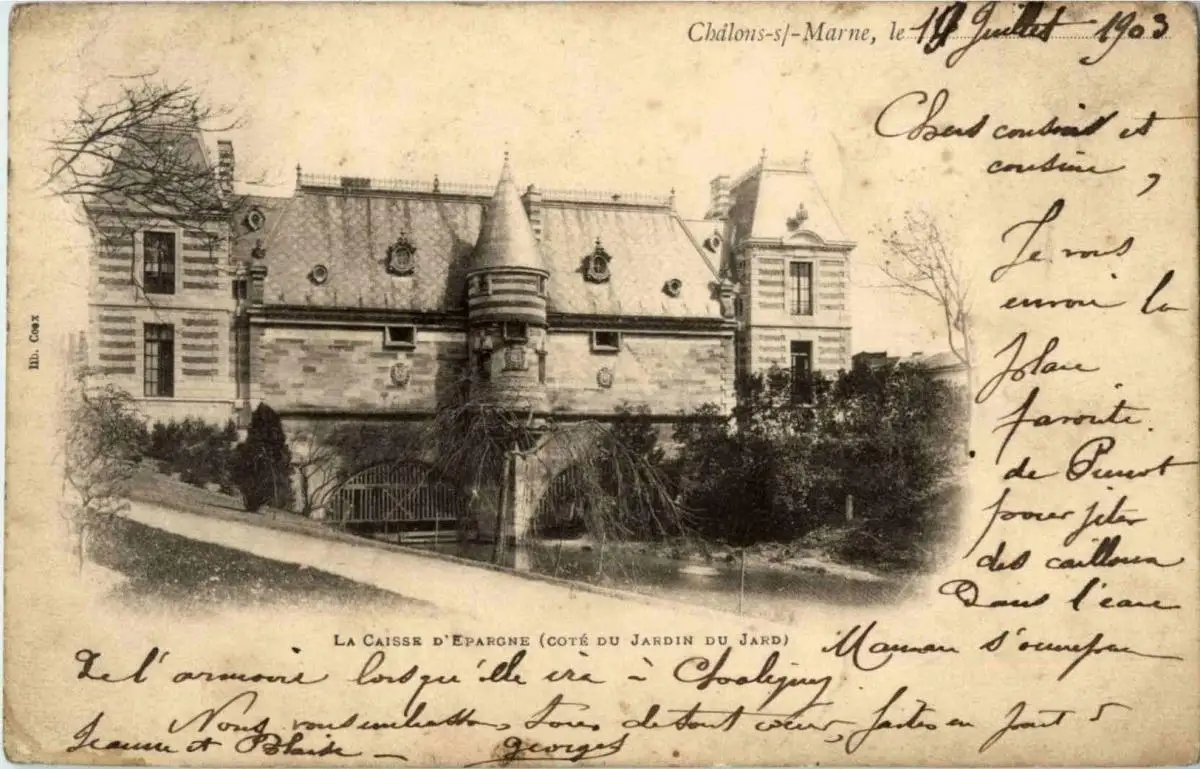 Châlons-s/-Marne, le 19 Juillet 1903
Chers cousins et
cousine,
Je vous
envoie la
place
favorite
de Pierrot
pour jeter
des cailloux
Dans l'eau
LA CAISSE D'EPARGNE (COTÉ DU JARDIN DU JARD)
Maman s'occupera
De l'armoire lorsqu'elle ira à Chaligny
Nous vous embrassons Tous de tout cœur, faites en part à
Jeanne et Blaise — Georges
lib. Coex